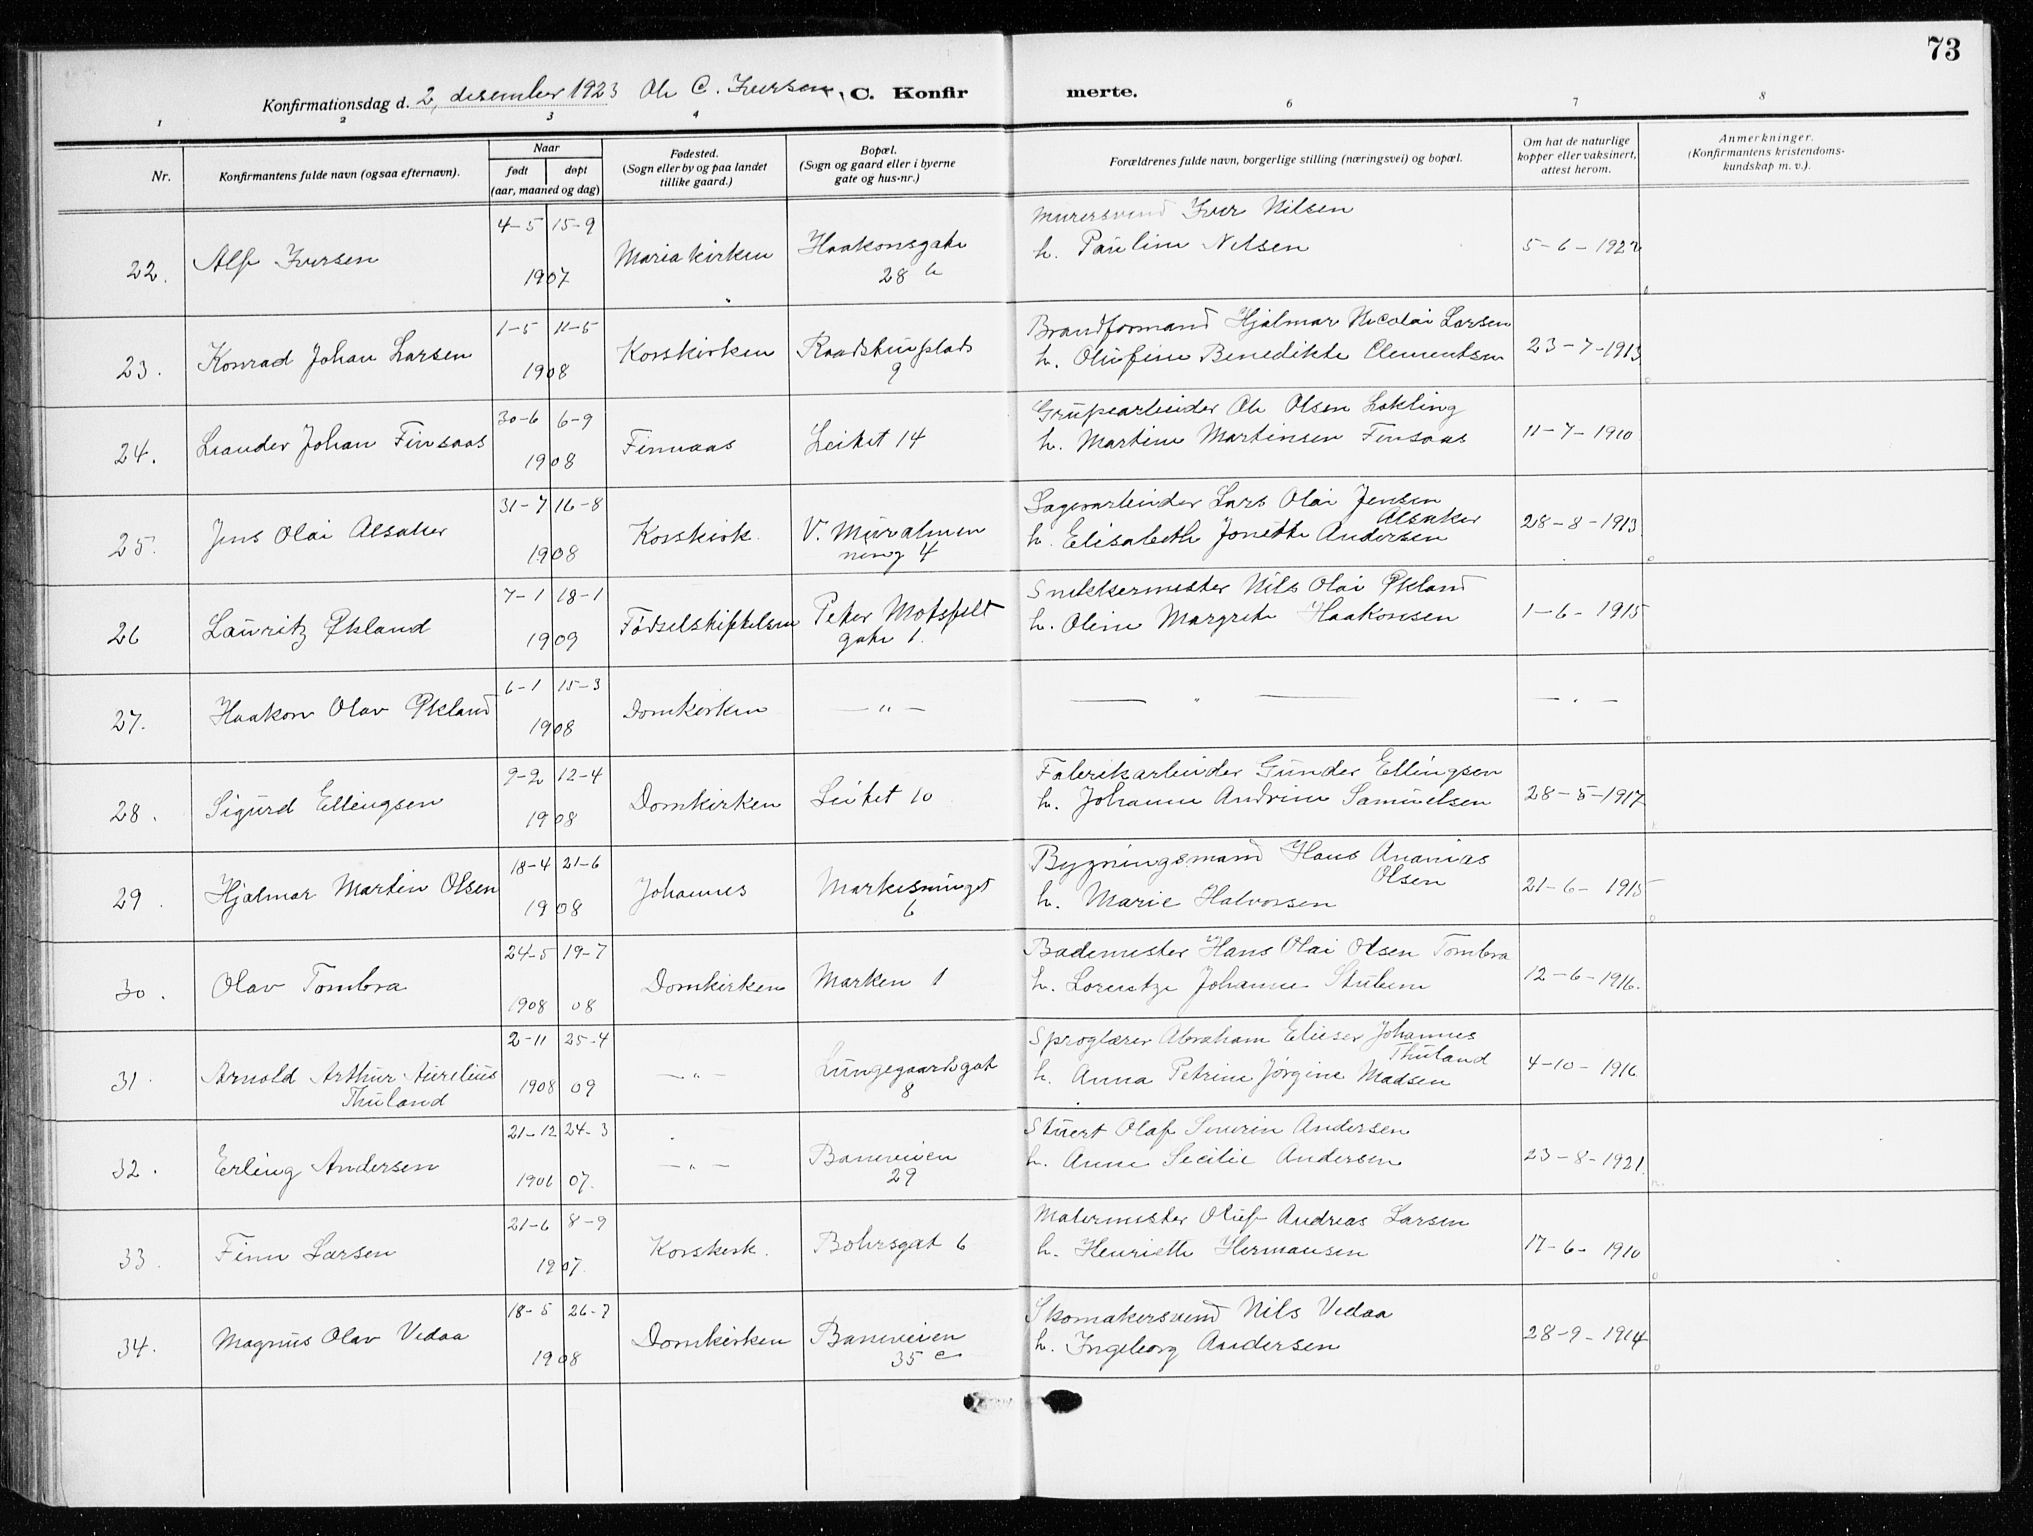 73
Konfirmationsdag d. 2, desember 1923 Ole C. Iversen C. Konfir merte.
1 2 3 4 6 7 8
Nr.
Konfirmantens fulde navn (ogsaa efternavn).
Naar
født døpt
(aar, maaned og dag)
Fødested.
(Sogn eller by og paa landet
tillike gaard.)
Bopæl.
(Sogn og gaard eller i byerne
gate og hus-nr.)
Forældrenes fulde navn, borgerlige stilling (næringsvei) og bopæl.
Om hat de naturlige
kopper eller vaksinert,
attest herom.
Anmerkninger.
(Konfirmantens kristendoms-
kundskap m. v.).
4-5 15-9 Murersvend Iver Nilsen
22. Alf Iversen Mariakirken Haakonsgate h. Pauline Nilsen 5-6-1922
1907 28 b
1-5 11-5 Brandformand Hjalmar Nicolai Larsen
23. Konrad Johan Larsen Korskirken Raadstuplads h. Olufine Benedikte Clementsen 23-7-1913
1908 9
30-6 6-9 Grubearbeider Ole Olsen Løkling
24. Leander Johan Finsaas Finnaas Leitet 14 h. Martine Martinsen Finsaas 11-7-1910
1908
31-7 16-8 Sagevarbeider Lars Olai Jensen
Alsaker
25. Jens Olai Alsaker Korskirk. V. Muralmen h. Elisabeth Jonette Andersen 28-8-1913
1908 ning 4
7-1 18-1 Snekkermester Nils Olai Økland
26 Lauritz Økland Fødselstiftelsen Peter Motzfelt h. Oline Margrete Haakonsen 1-6-1915
1909 gate 1.
6-1 15-3
27. Haakon Olav Økland Domkirken — " — — " — — " —
1908
9-2 12-4 Fabrikarbeider Gunder Ellingsen
28. Sigurd Ellingsen Domkirken Leitet 10 h. Johanne Andrine Samuelsen 28-5-1917
1908
18-4 21-6 Bygningsmand Hans Ananias
Olsen
29. Hjalmar Martin Olsen Johannes Markesmuget h. Marie Halvorsen 21-6-1915
1908 6
24-5 19-7 Bademester Hans Olai Olsen Tombra
30. Olav Tombra Domkirken Marken 1 h. Lorentze Johanne Stubem 12-6-1916.
1908 08
2-11 25-4 Sproglærer Abraham Elieser Johannes
Thuland
31. Arnold Arthur Aurelius — " — Lungegaardsgat h. Anna Petrine Jørgine Madsen 4-10-1916
Thuland 1908 09 8
21-12 24-3 Stuert Olaf Severin Andersen
32. Erling Andersen — " — Baneveien h. Anne Secilie Andersen 23-8-1921.
1906 07. 29
21-6 8-9 Malermester Oluf Andreas Larsen
33. Finn Larsen Korskirk. Bohrsgat 6 h. Henriette Hermansen 17-6-1910
1907.
18-5 26-7 Skomakersvend Nils Vedaa
34. Magnus Olav Vedaa Domkirken Baneveien h. Ingeborg Andersen 28-9-1914
1908 35 c